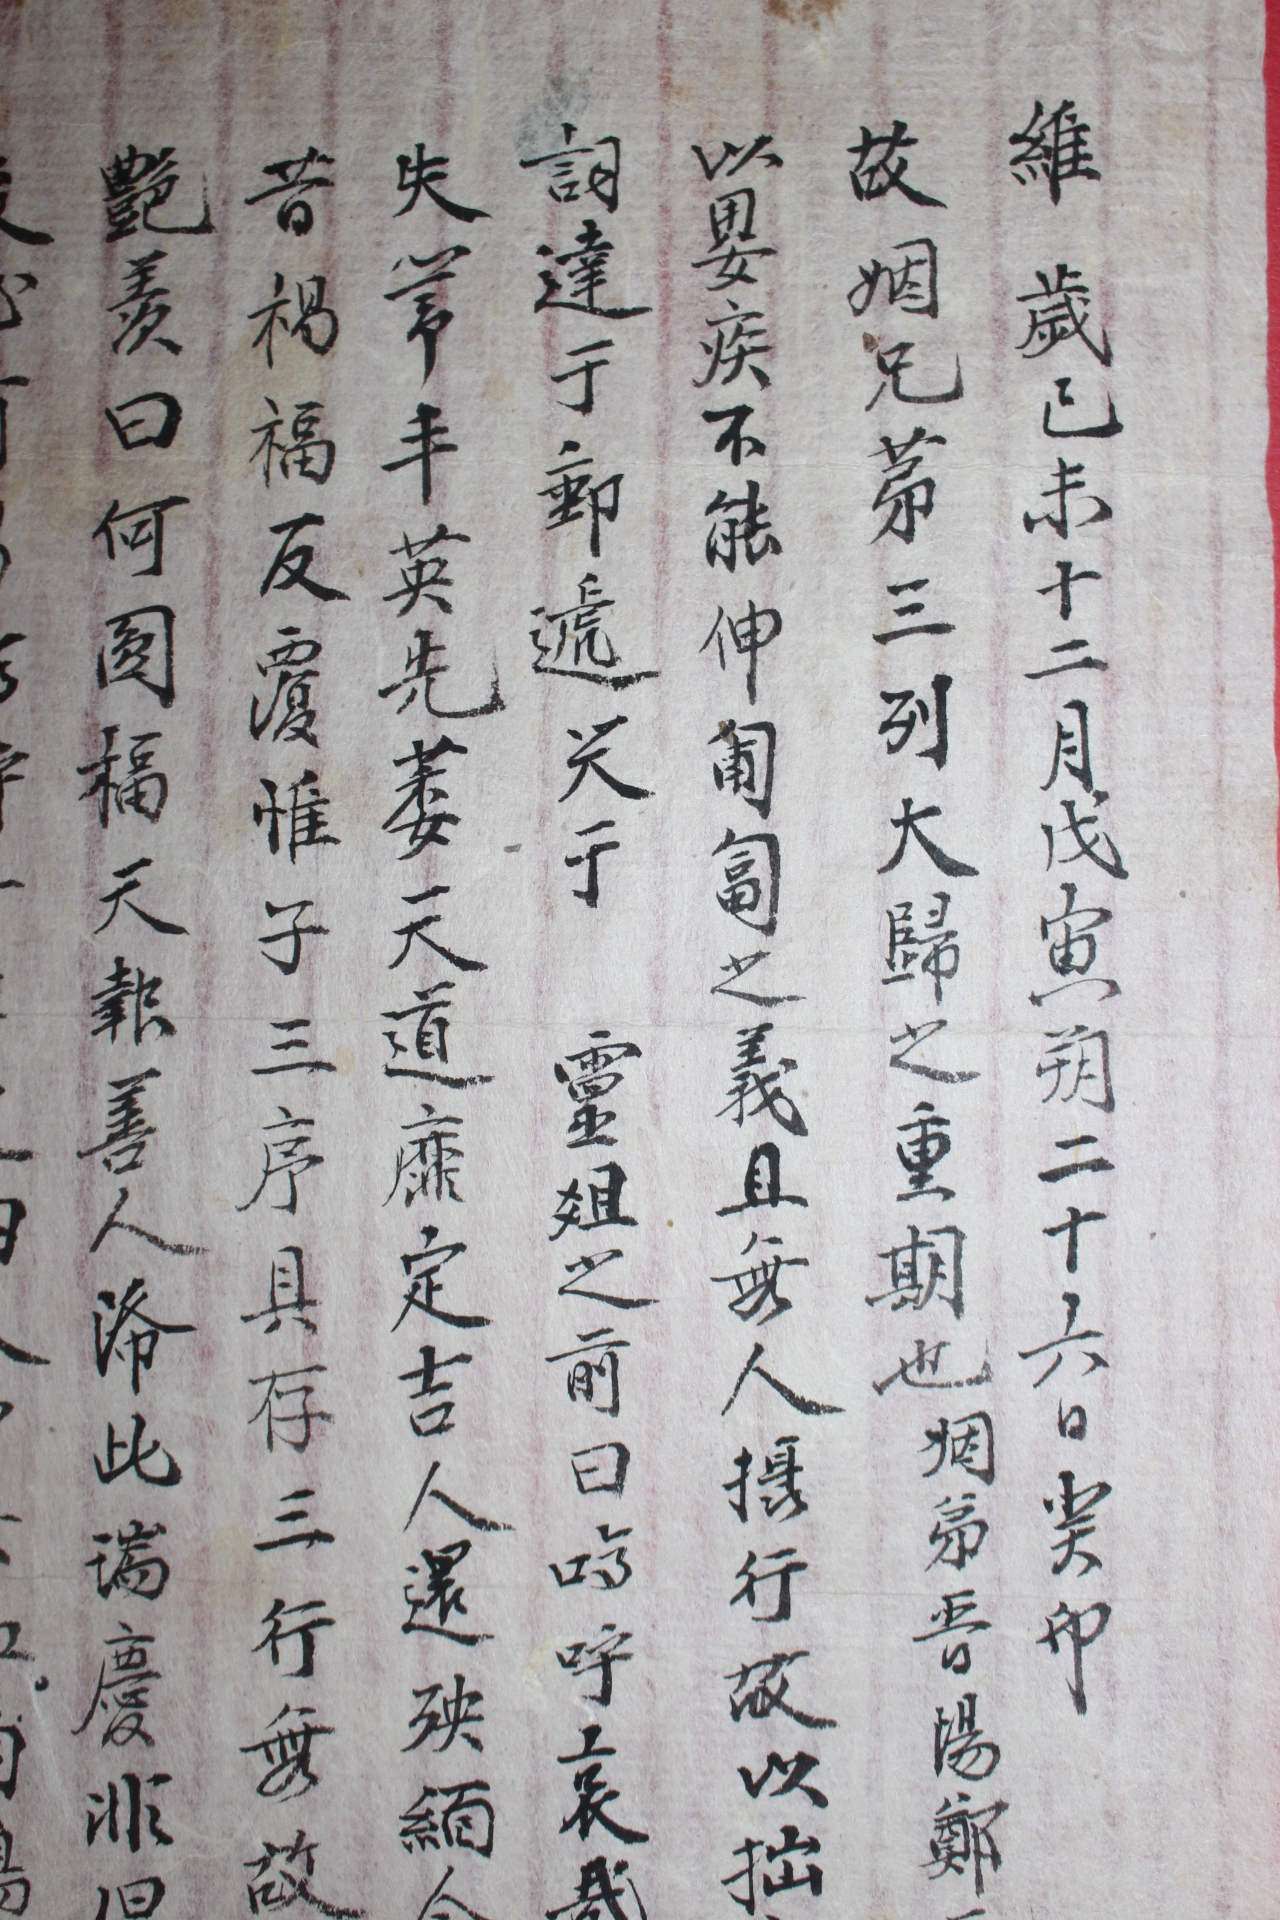 維 歲己未十二月戊寅朔二十六日癸卯
故姻兄苐三列大歸之重期也姻弟晋陽鄭
以嬰疾不能伸匍匐之義且無人攝行故以拙
詞達于郵遞哭于 靈俎之前曰嗚呼哀哉
失常丰英先萎天道靡定吉人還殃緬
昔禍福反覆惟子三序具存三行無故
艶羨曰何圓福天報善人済此瑞慶非但